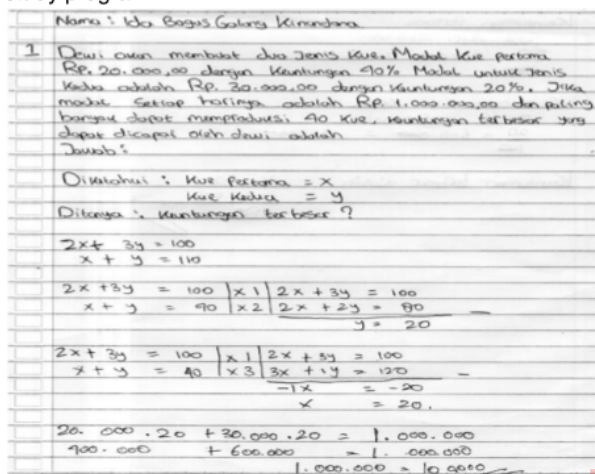 Nama : Ida Bagus Galang Kinandana
1 Dewi akan membuat dua Jenis Kue. Modal Kue pertama
Rp. 20.000,00 dengan Keuntungan 40% Modal untuk Jenis
Kedua adalah Rp. 30.000,00 dengan Keuntungan 20%. Jika
modal Setiap harinya adalah Rp. 1.000.000,00 dan paling
banyak dapat memproduksi 40 Kue, keuntungan terbesar yang
dapat dicapai oleh dewi adalah
Jawab :
Diketahui : Kue Pertama = x
Kue Kedua = y
Ditanya : Keuntungan terbesar ?
2x + 3y = 100
x + y = 110
2x + 3y = 100 | x 1 | 2x + 3y = 100
x + y = 40 | x 2 | 2x + 2y = 80 -
y = 20
2x + 3y = 100 | x 1 | 2x + 3y = 100
x + y = 40 | x 3 | 3x + 3y = 120 -
-1x = -20
x = 20.
20.000 . 20 + 30.000 . 20 = 1.000.000
400.000 + 600.000 = 1.000.000
1.000.000 =